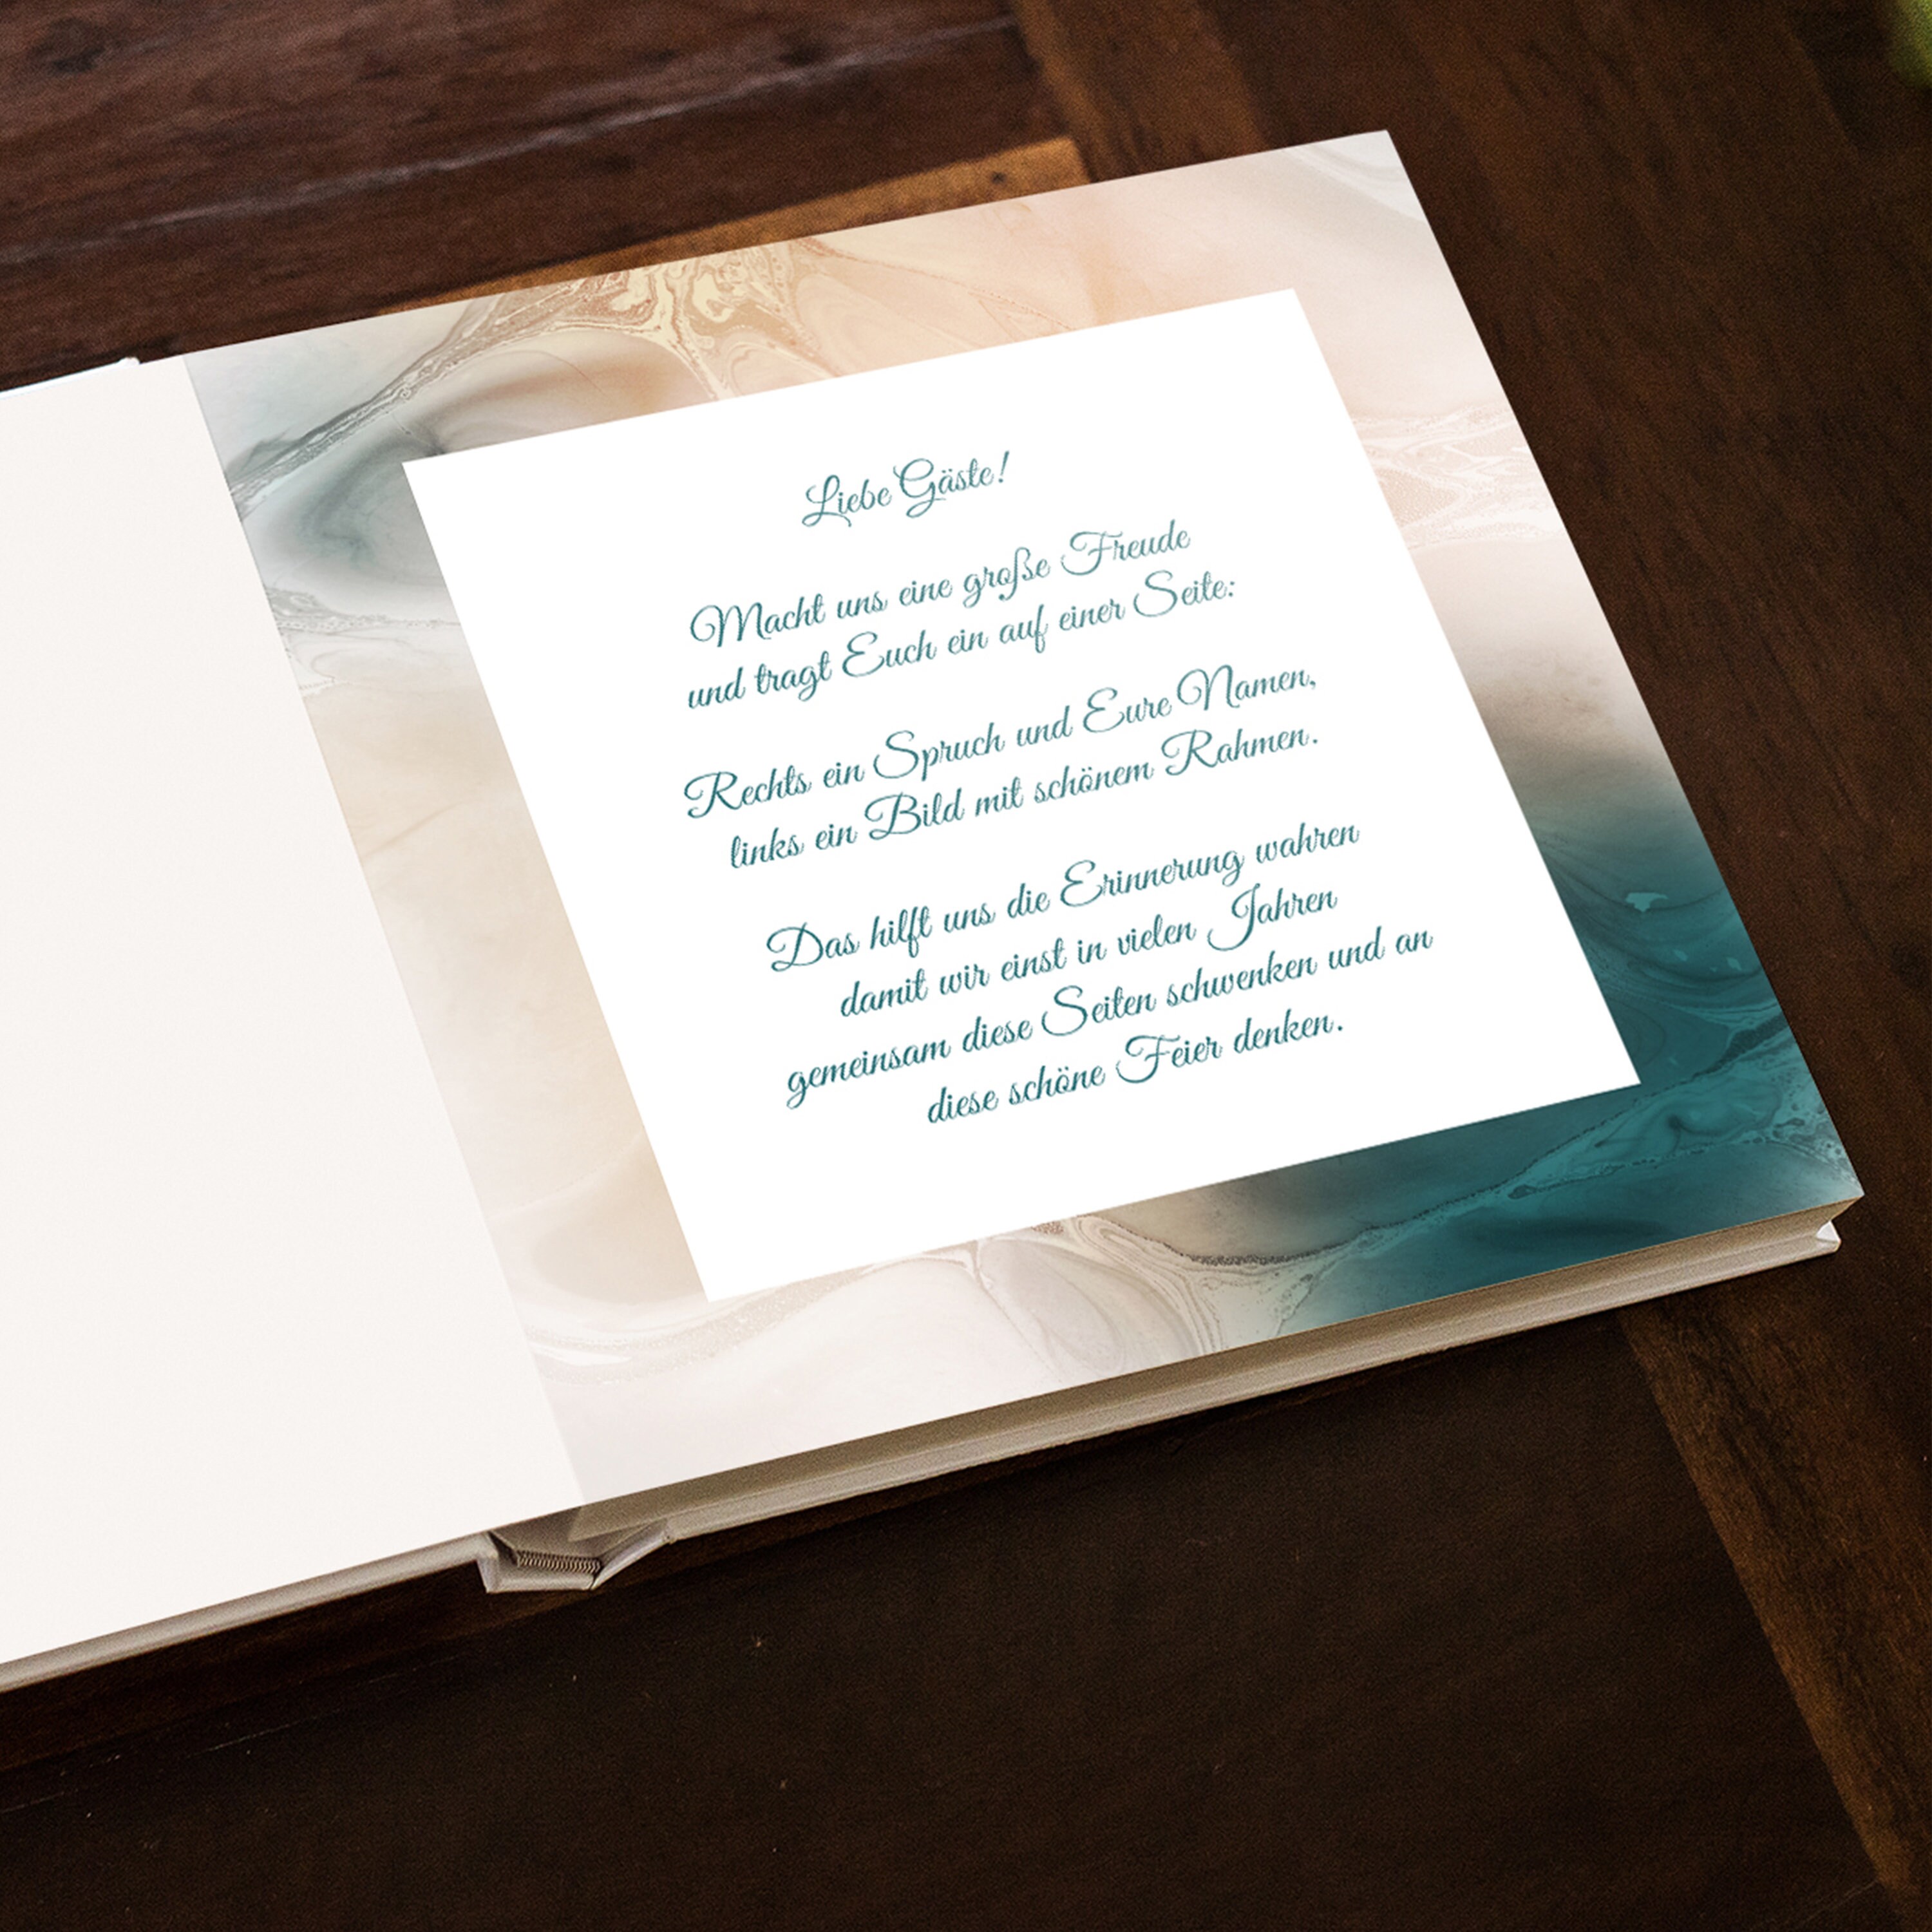 Liebe Gäste!
Macht uns eine große Freude
und tragt Euch ein auf einer Seite:
Rechts ein Spruch und Eure Namen,
links ein Bild mit schönem Rahmen.
Das hilft uns die Erinnerung wahren
damit wir einst in vielen Jahren
gemeinsam diese Seiten schwenken und an
diese schöne Feier denken.